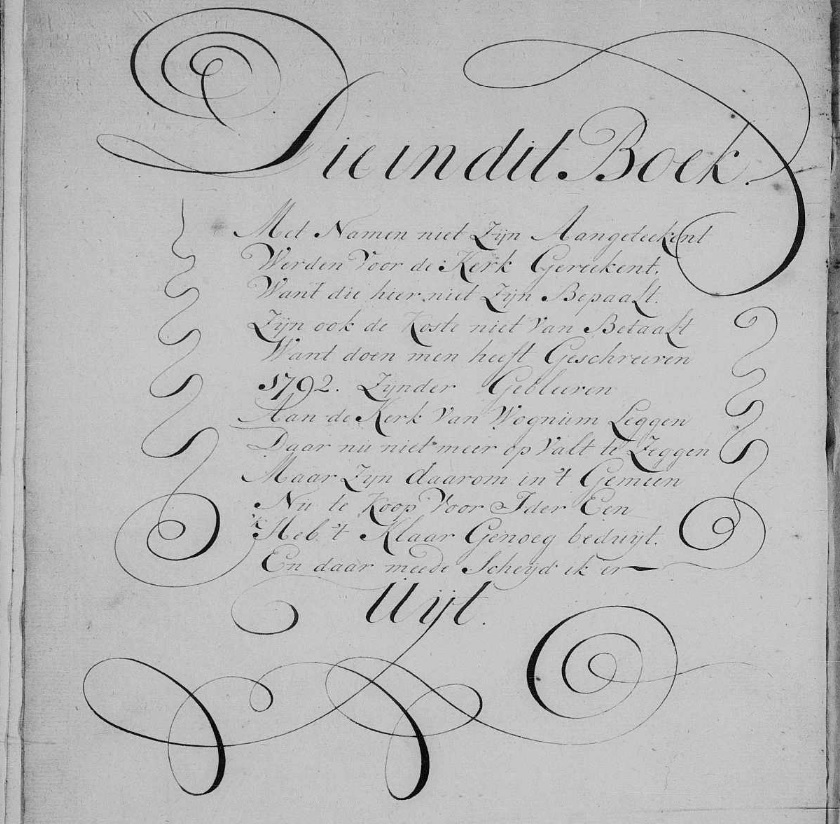 Die in dit Boek
Met Namen niet Zijn Aangeteekent
Werden Voor de Kerk Gereekent.
Want die hier niet Zijn Bepaalt.
Zijn ook de Koste niet van Betaalt
Want doen men heeft Geschreeven
1792. Zijnder Gebleeven
Aan de Kerk van Wognum Leggen
Daar nu niet meer op valt te Zeggen
Maar Zijn daarom in 't Gemeen
Nu te Koop Voor Ider Een
'k Heb 't Klaar Genoeg beduijt.
En daar meede Scheijd ik er
Uijt.